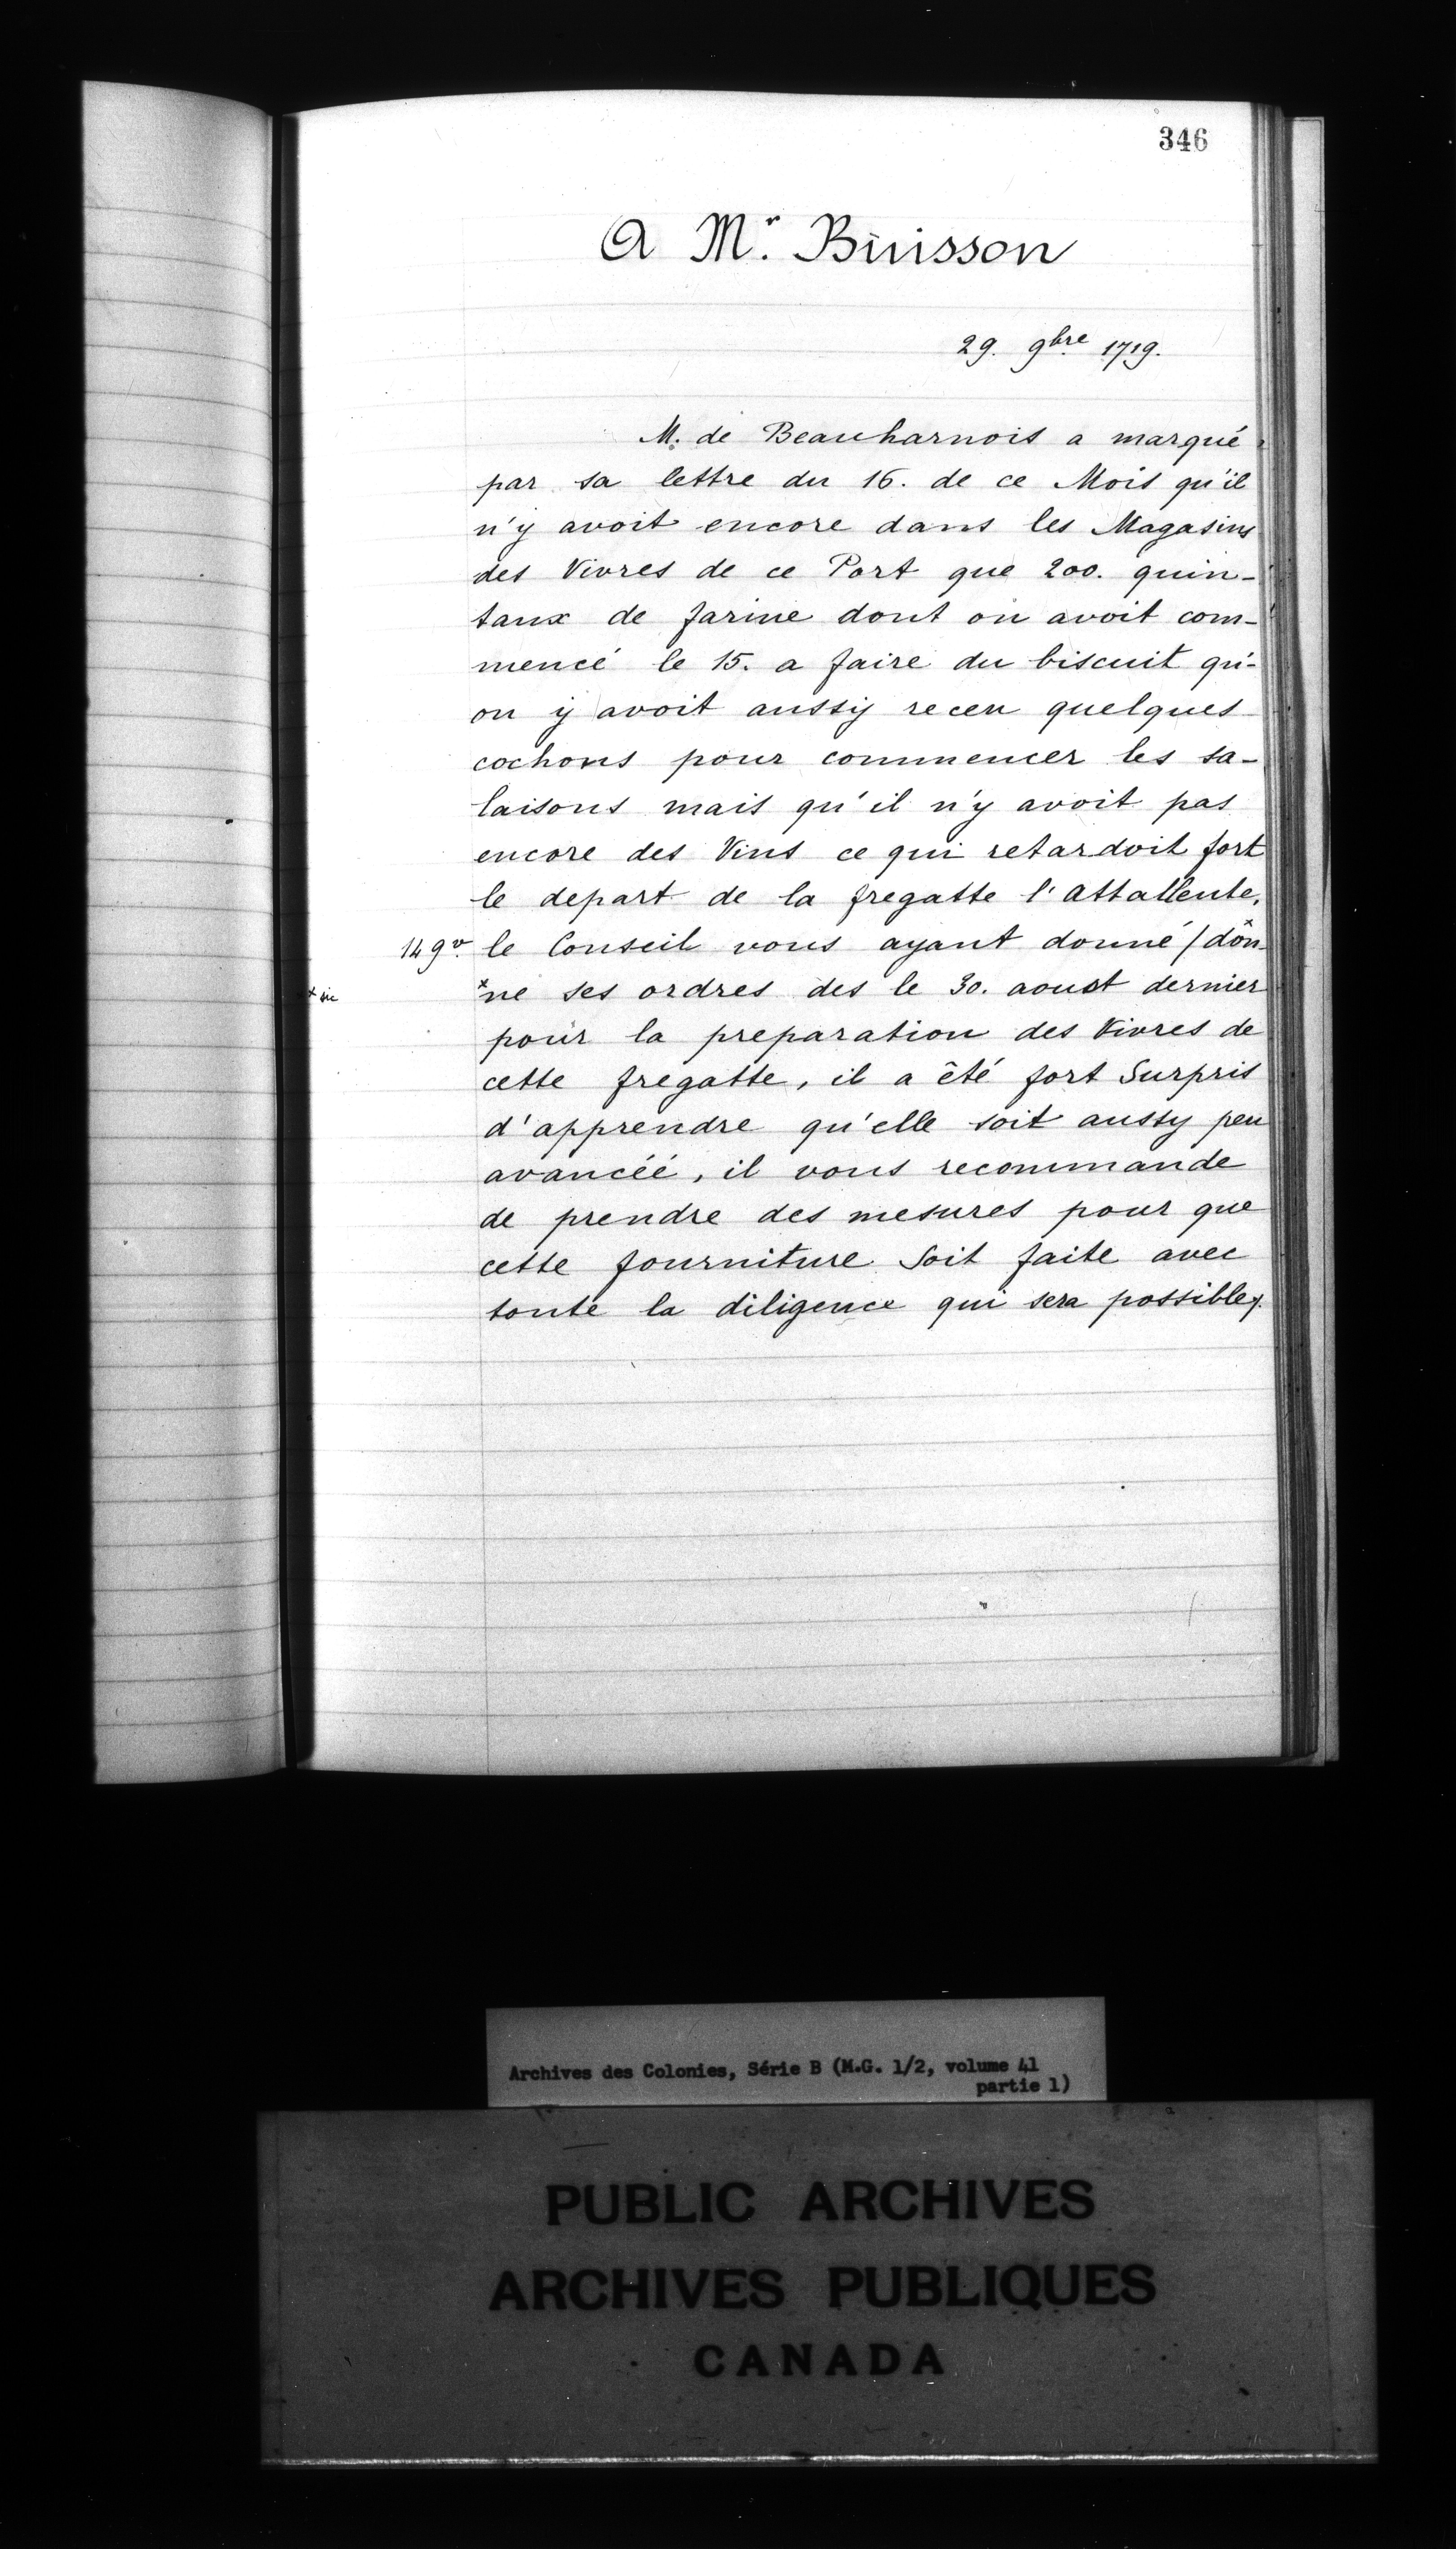 346
A Mr. Buisson
29. 9bre 1719.
M. de Beauharnois a marqué
par sa lettre du 16. de ce Mois qu'il
n'y avoit encore dans les Magasins
des Vivres de ce Port que 200. quin-
taux de farine dont on avoit com-
mencé le 15. a faire du biscuit qu'-
on y avoit aussy receu quelques
cochons pour commencer les sa-
laisons mais qu'il n'y avoit pas
encore des Vins ce qui retardoit fort
le depart de la fregatte l'Attallente,
149v. le Conseil vous ayant donné / don-
x sic
xne ses ordres des le 30. aoust dernier
pour la preparation des Vivres de
cette fregatte, il a été fort Surpris
d'apprendre qu'elle soit aussy peu
avancéé, il vous recommande
de prendre des mesures pour que
cette fourniture Soit faite avec
toute la diligence qui sera possible.
Archives des Colonies, Série B (M.G. 1/2, volume 41
partie 1)
PUBLIC ARCHIVES
ARCHIVES PUBLIQUES
CANADA